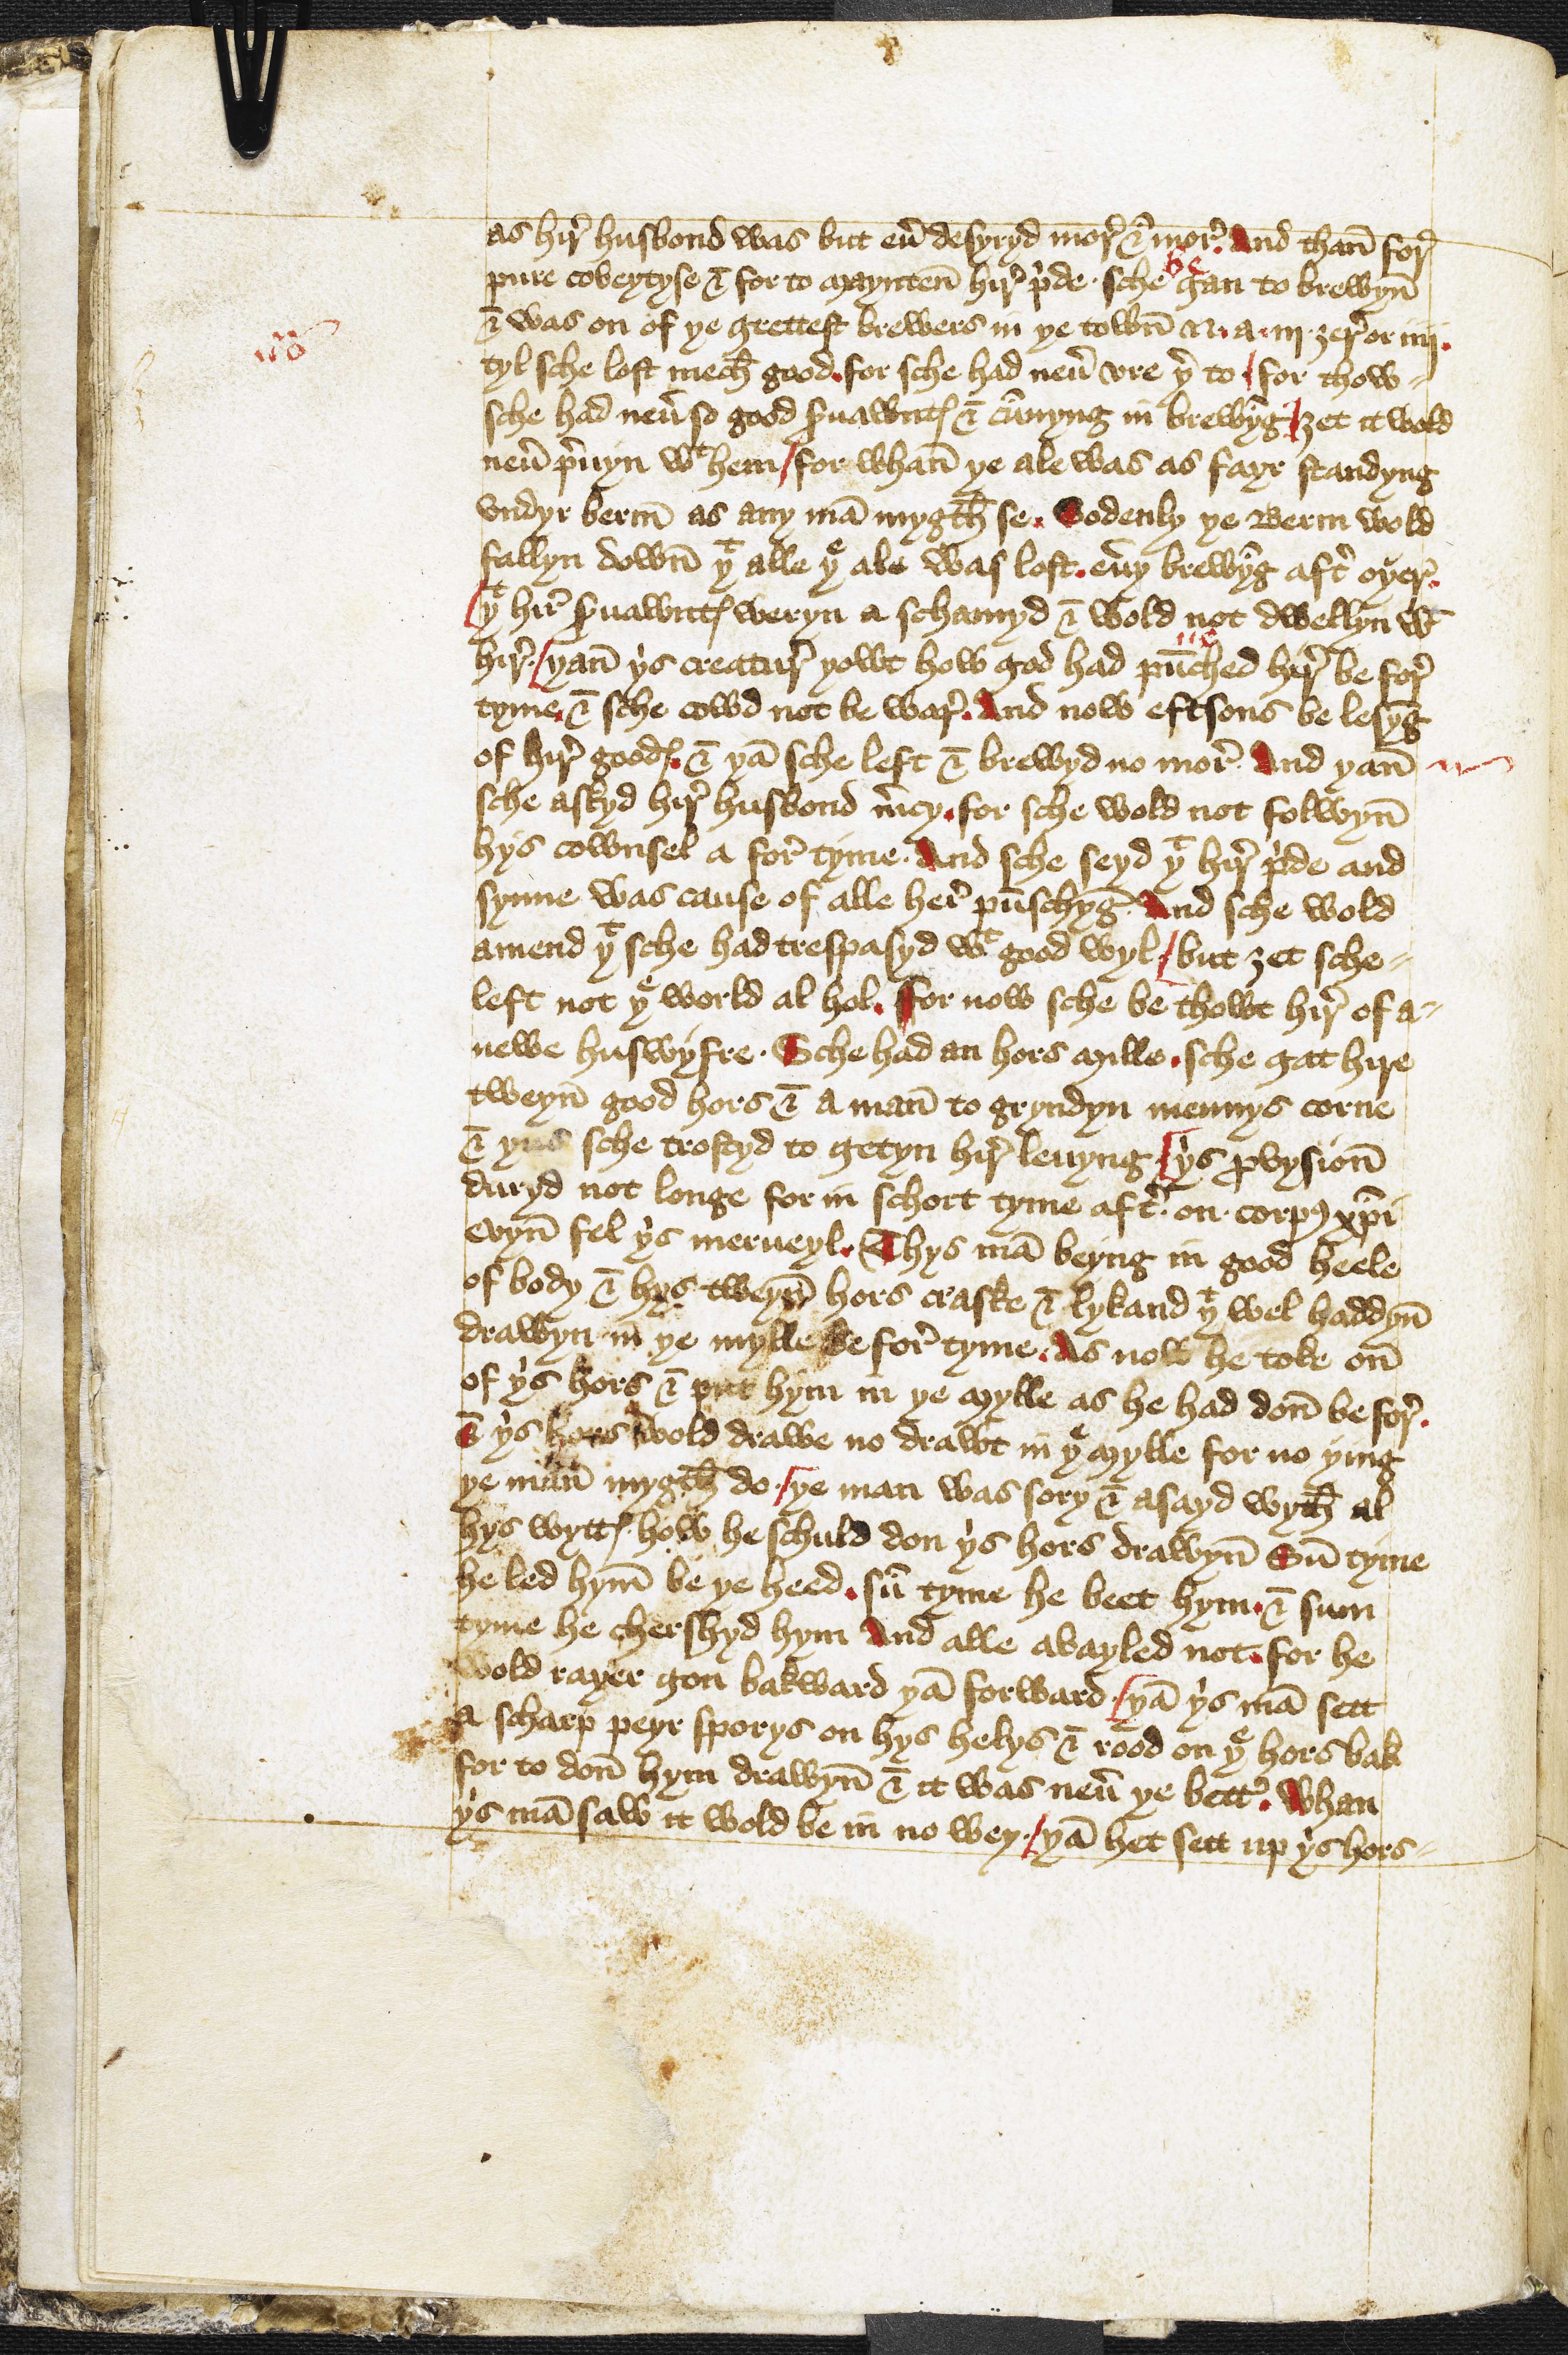 as hir̉ husbond was but eu̓ desyryd mor̉ & mor̉. And than̄ for̉
pure coveytyse & for to maynten̄ hir̉ p̓de. sche be gan to brewyn̄
& was on of þe grettest brewers in þe town̄ N. a. iij. ȝer̉ or iiij.
tyl sche lost mech̄ good. for sche had neu̓ vre þ̓ to. for thow
sche had neu̓ so good s̓uawntꝭ & cūnyng in brewyḡ ȝet it wold
neu̓ p̓uyn wᵗ hem / for whan̄ þe ale was as fayr standyng
vndyr berm̄ as any mā mygth̄ se. Sodenly þe Berm wold
fallyn down̄ þᵗ alle þᵉ ale was lost. eu̓y brewyḡ aft̓ oþer̉.
þᵗ hir̉ s̓uawntꝭ weryn a schamyd & wold not dwellyn wᵗ
hir̉. þan̄ þ̓s creatur̉ þowt how god had pūne ched hir̉ be for̉
tyme. & sche cowd not be war̉. And now eftsons be lesyḡ
of hir̉ goodꝭ. & þā sche left & brewyd no mor̉. And þan̄
sche askyd hir̉ husbond m̓cy. for sche wold not folwyn̄
hys cownsel a for̉ tyme. And sche seyd þᵗ hir̉ p̓de and
synne was cause of alle her̉ pūschyḡ. And sche wold
amend þᵗ sche had trespasyd wᵗ good wyl / but ȝet sche
left not þᵉ world al hol. for now sche be thowt hir̉ of a
newe huswyfre. Sche had an hors mille. sche gat hire
tweyn̄ good hors & a man̄ to gryndyn mennys corne
& þus sche trostyd to getyn hir̉ leuyng. þ̓s ꝓvysion̄
duryd not longe for in schort tyme aft̓. on. corpꝰ xp̄i
evyn̄ fel þ̓s merueyl. Thys mā beyng in good heele
of body & hys tweyn̄ hors craske & lykand þᵗ wel haddyn̄
drawyn in þe mylle be for̉ tyme. As now he toke on̄
of þ̓s hors & put hym in þe mylle as he had don̄ be for̉.
& þ̓s hors wold drawe no drawt in þᵉ mylle for no þing
þe man̄ mygth̄ do. þe man was sory & asayd wyth̄ al
hys wyttꝭ. how he schuld don þ̓s hors drawyn̄ Sū tyme
he led hym̄ be þe heed. sū tyme he beet hym. & sum
tyme he chershyd hym And alle avayled not. for he
wold raþer gon bakward þā forward. þā þ̓s mā sett
a scharp peyr sporys on hys helys & rood on þᵉ hors bak
for to don̄ hym drawyn̄ & it was neu̓ þe bett̓. Whan
þ̓s mā saw it wold be in no wey. þā het sett up þ̓s hors